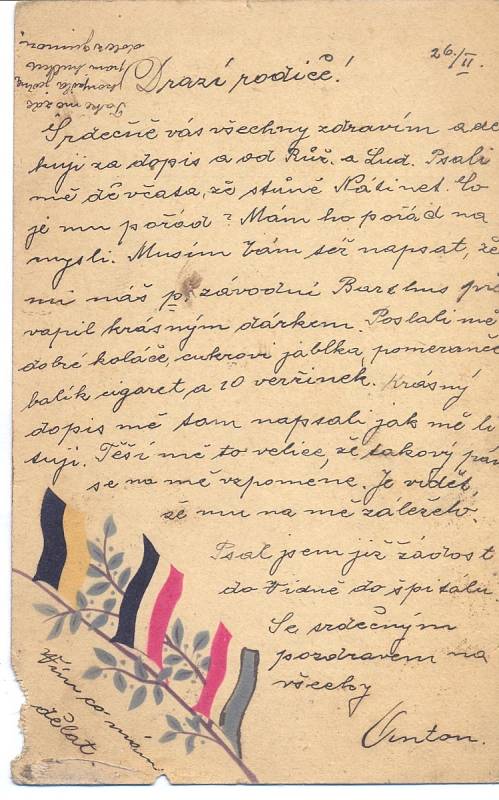 26./II.
Drazí rodičé!
Srdečně vás všechny zdravím a dě
kuji za dopis a od Růž. a Lud. Psali
mě děvčata, žě stůně Nátinet. Co
je mu pořád? Mám ho pořád na
mysli. Musím Vám též napsat, žě
mi náš p. závodní Barthus pře
vapil krásným dárkem. Poslali mě
dobré koláče, cukrovi jáblka, pomeranče
balík cigaret a 10 veržinek. Krásný
dopis mě tam napsali jak mě li
tují. Těší mě to velice, žě takový pán
se na mě vzpomene. Je vidět,
žě mu na mě záleželo.
Psal jsem již žádost
do Vídně do špitálu.
Se srdečným
pozdravem na
všecky
Anton.
Vím co mám
dělat.